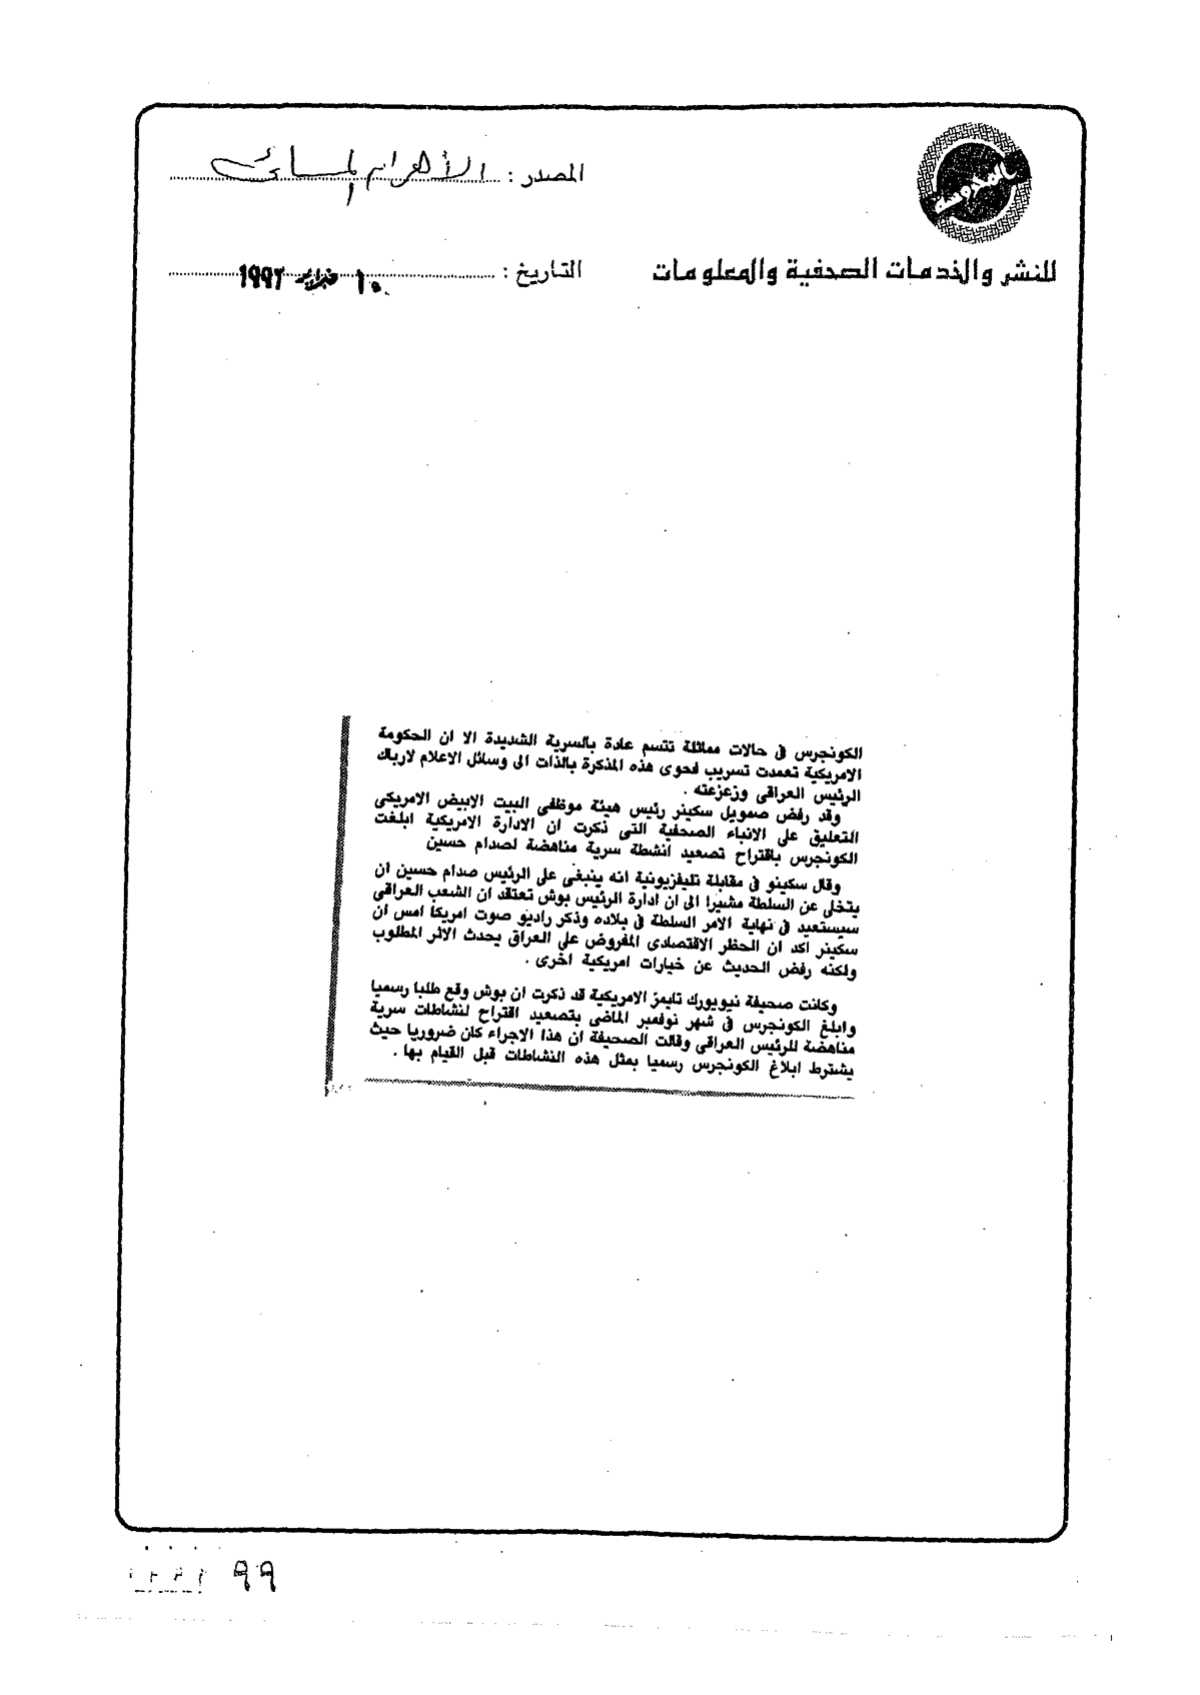 المصدر : الأهرام المسائى
المدوسة
للنشر والخدمات الصحفية والمعلومات
التاريخ : ١٠ فبراير ١٩٩٢
الكونجرس فى حالات مماثلة تتسم عادة بالسرية الشديدة الا ان الحكومة
الامريكية تعمدت تسريب فحوى هذه المذكرة بالذات الى وسائل الاعلام لارباك
الرئيس العراقى وزعزعته .
وقد رفض صمويل سكينر رئيس هيئة موظفى البيت الابيض الامريكى
التعليق على الانباء الصحفية التى ذكرت ان الادارة الامريكية ابلغت
الكونجرس باقتراح تصعيد انشطة سرية مناهضة لصدام حسين
وقال سكينو فى مقابلة تليفزيونية انه ينبغى على الرئيس صدام حسين ان
يتخلى عن السلطة مشيرا الى ان ادارة الرئيس بوش تعتقد ان الشعب العراقى
سيستعيد فى نهاية الامر السلطة فى بلاده وذكر راديو صوت امريكا امس ان
سكينر اكد ان الحظر الاقتصادى المفروض على العراق يحدث الاثر المطلوب
ولكنه رفض الحديث عن خيارات امريكية اخرى .
وكانت صحيفة نيويورك تايمز الامريكية قد ذكرت ان بوش وقع طلبا رسميا
وابلغ الكونجرس فى شهر نوفمبر الماضى بتصعيد اقتراح لنشاطات سرية
مناهضة للرئيس العراقى وقالت الصحيفة ان هذا الاجراء كان ضروريا حيث
يشترط ابلاغ الكونجرس رسميا بمثل هذه النشاطات قبل القيام بها .
٩٩